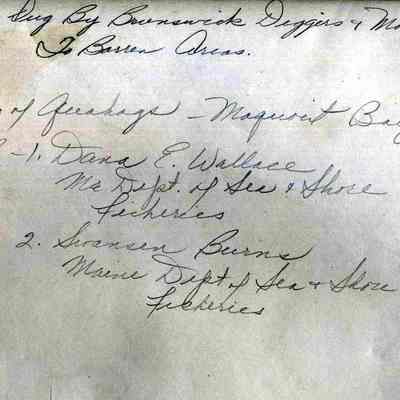 Dug By Brunswick Diggers &
To Barren Areas.
of Quahogs - Maquoit Bay
-1. Dana E. Wallace
Me Dept. of Sea & Shore
Fisheries
2. Swansen Burns
Maine Dept of Sea & Shore
Fisheries